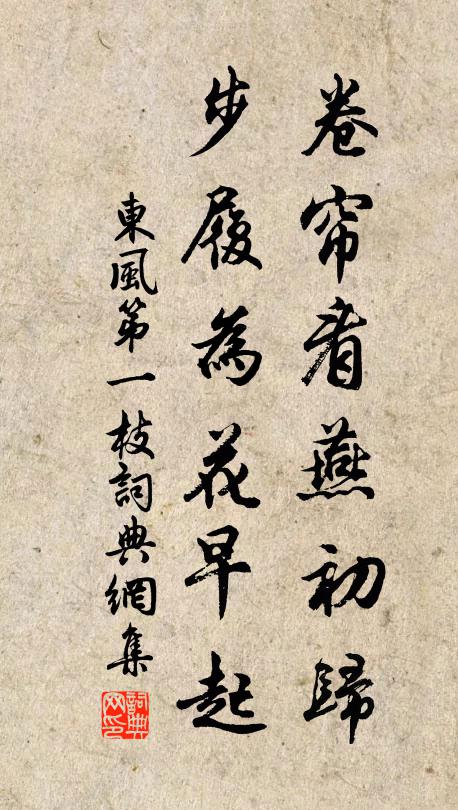 卷帘看燕初歸
步履為花早起
東風第一枝詞典網集
詞典
网印